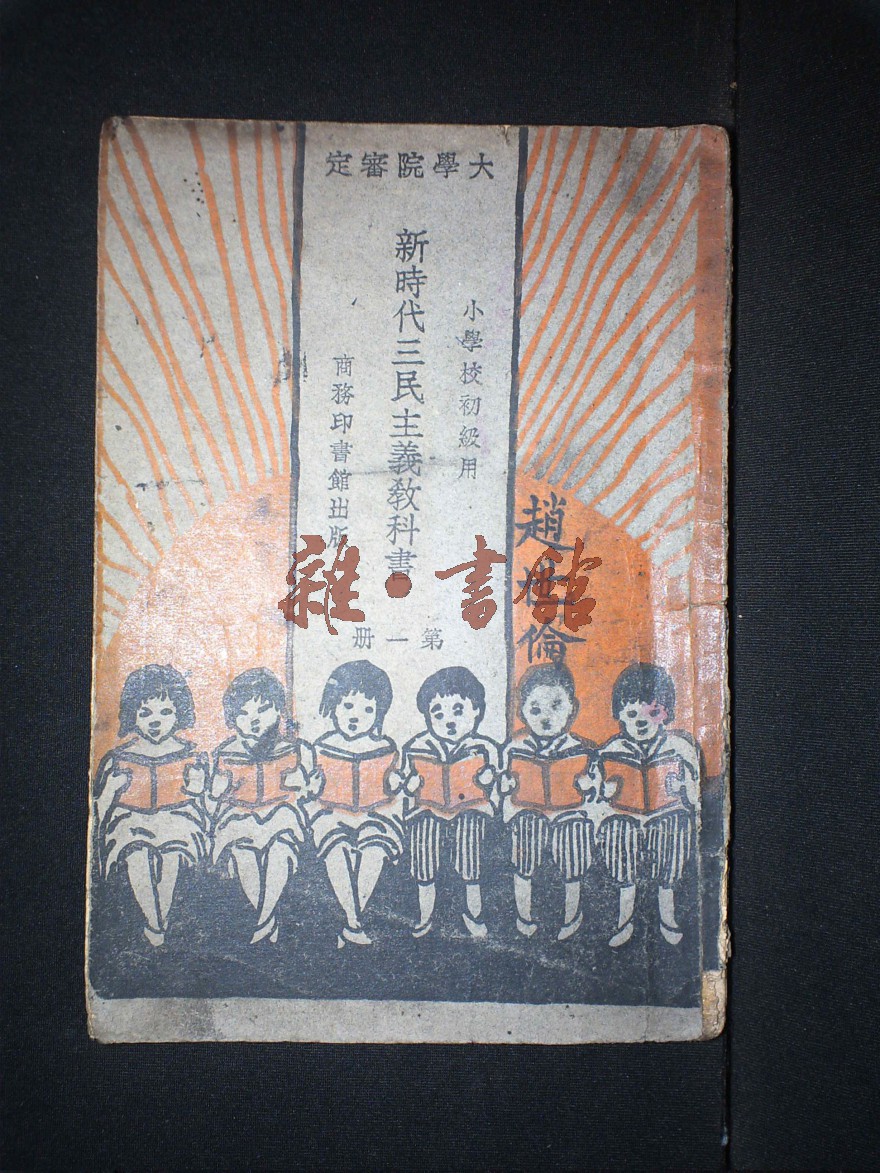 大學院審定
小學校初級用
新時代三民主義教科書
商務印書館出版
第一册
趙世倫
雜·書館